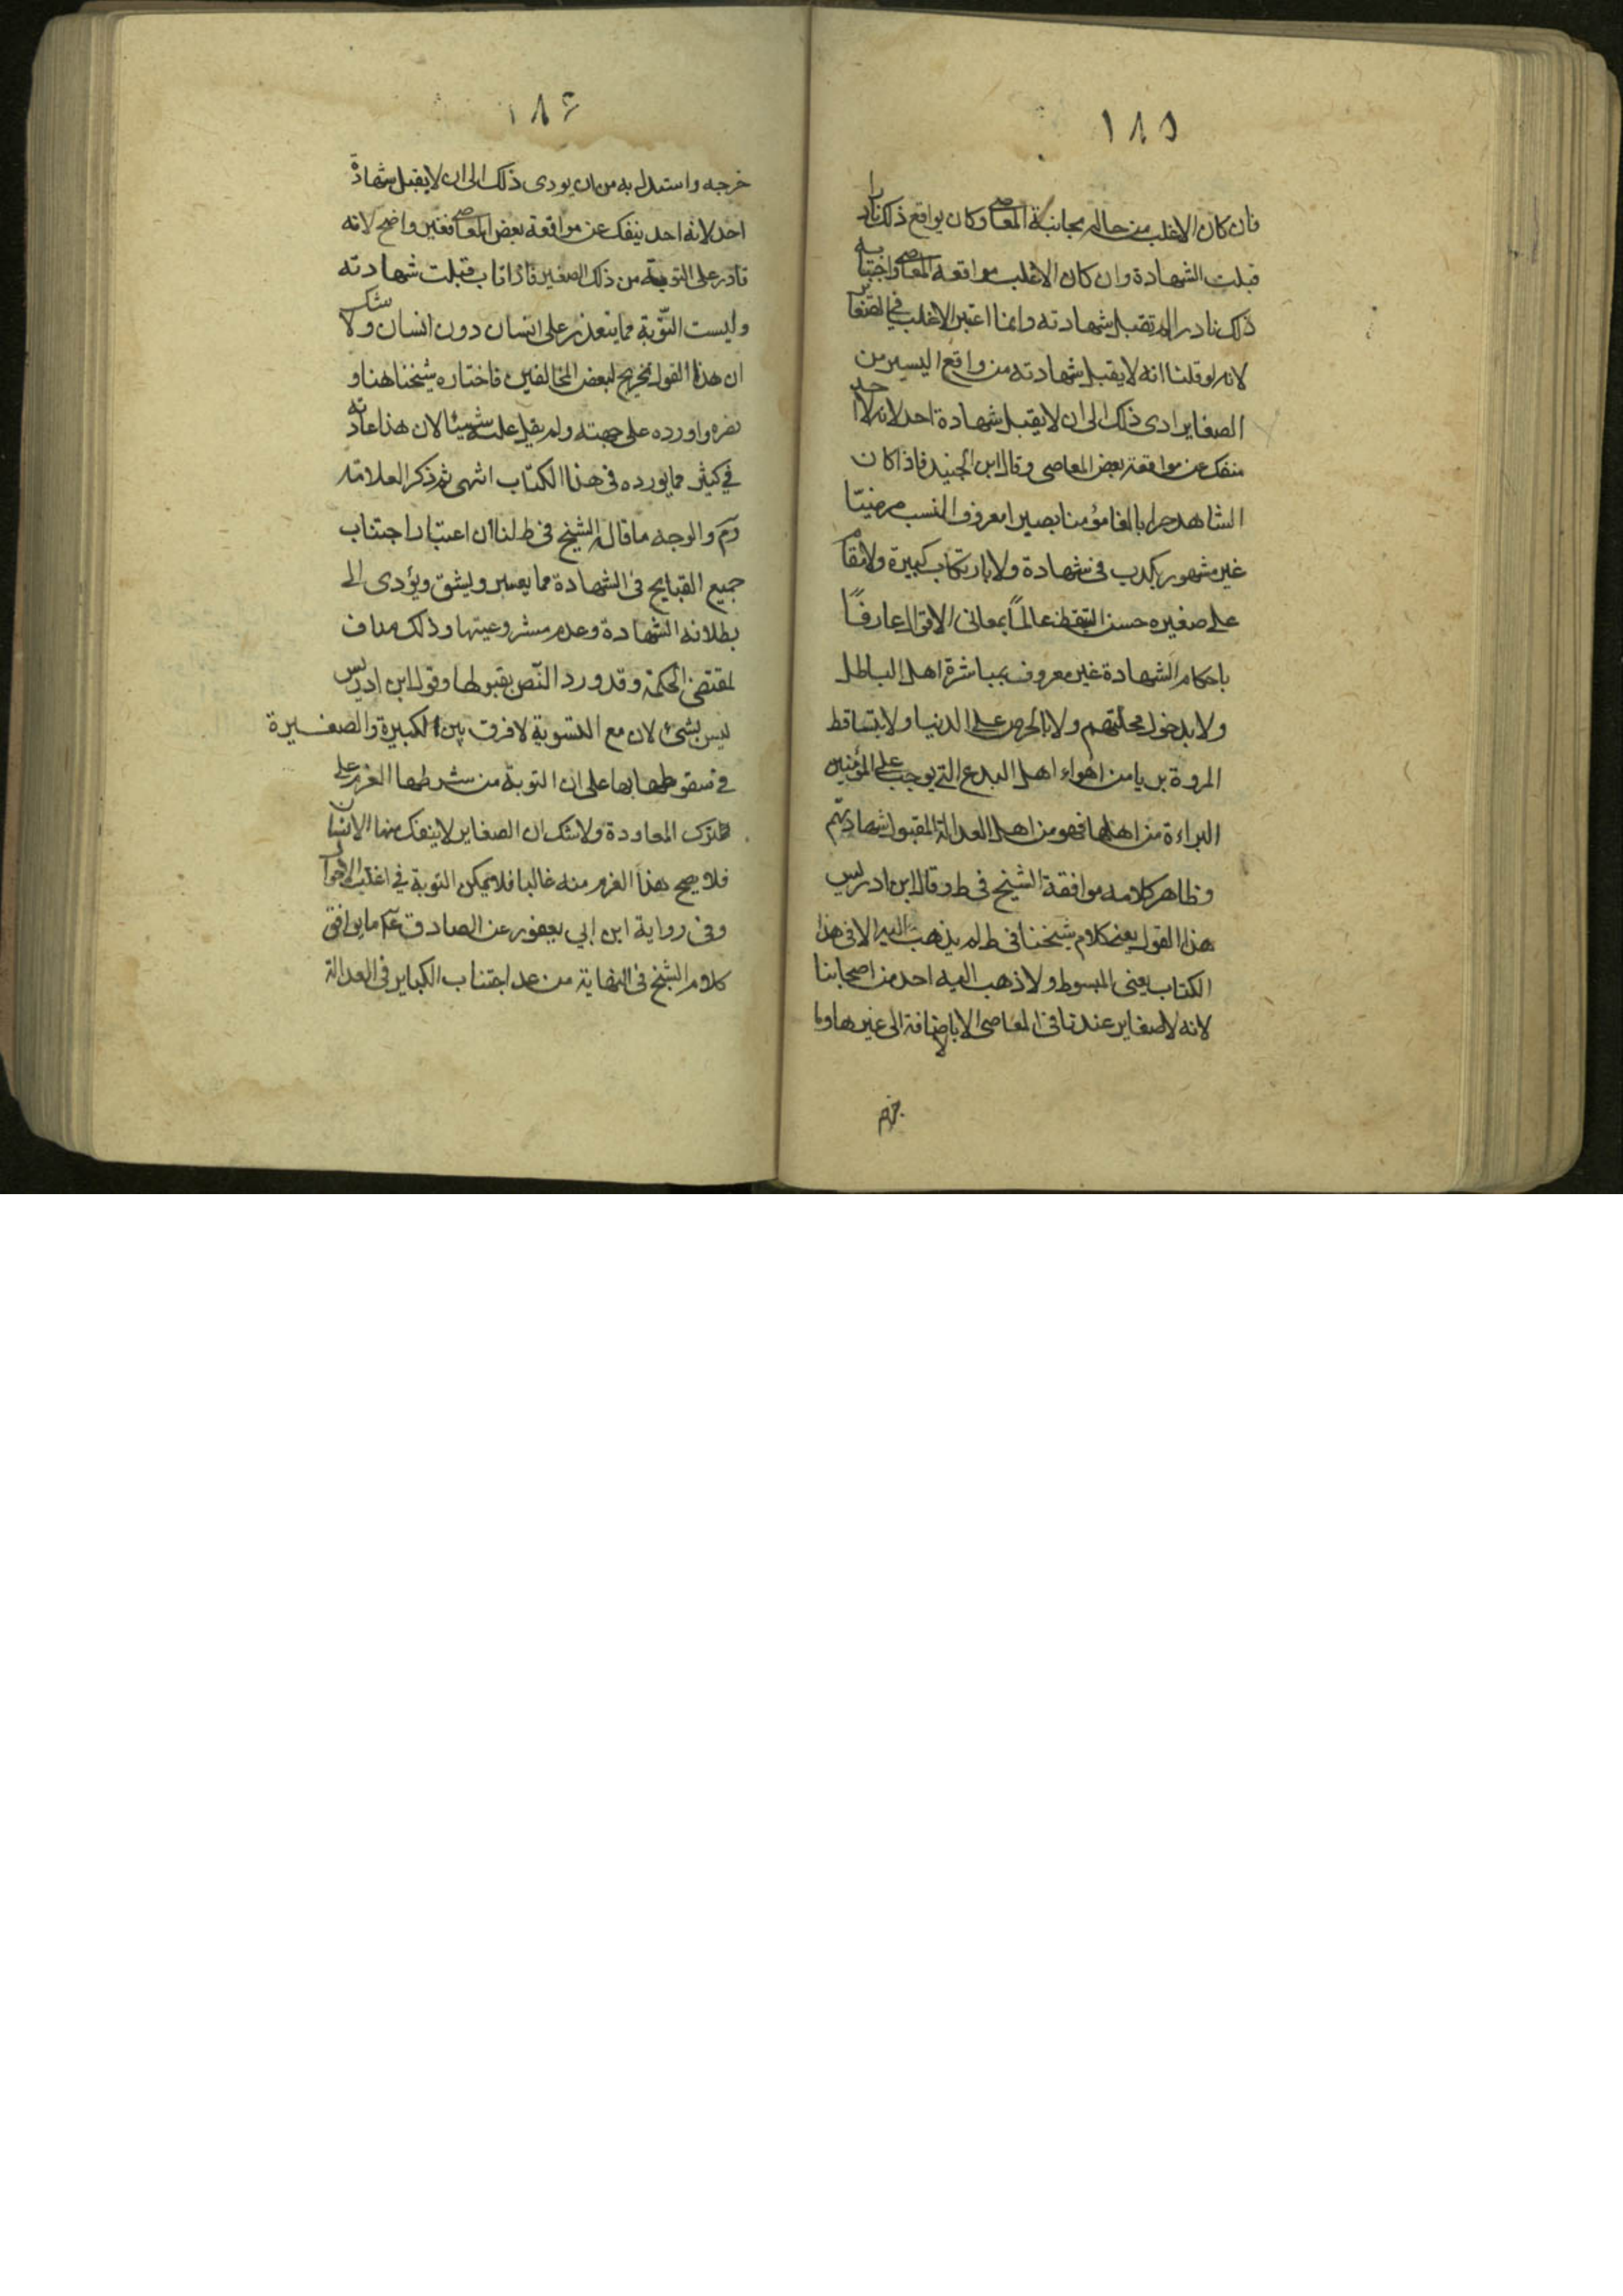 ١٨٥
فان كان الاغلب من حاله مجانبة المعاصي وكان يواقع ذلك نادرا
قبلت الشهادة وان كان الاغلب مواقعه المعاصي واجتنابه
ذلك نادرا لم تقبل شهادته وانما اعتبر الاغلب في الصغاير
لانه لو قلنا انه لا يقبل شهادته من واقع اليسير من
الصغاير ادى ذلك الى ان لا يقبل شهادة احد لانه لا احد
منفك من مواقعة بعض المعاصي وقال ابن الجنيد فاذا كان
الشاهد حرا بالغا مؤمنا بصيرا معروف النسب مرضيّا
غير مشهور بكذب في شهادة ولا بارتكاب كبيرة ولا مقام
على صغيره حسن التيقظ عالماً بمعاني الاقوال عارفاً
باحكام الشهادة غير معروف بمباشرة اهل الباطل
ولا بدخول محلتهم ولا بالحرص على الدنيا ولا بتساقط
المروة بريا من اهواء اهل البدع التي يوجب على المؤمنين
البراءة من اهلها فهو من اهل العدالة المقبول شهادتهم
وظاهر كلامه موافقة الشيخ في ط وقال ابن ادريس
هذا القول يعني كلام شيخنا في ط لم يذهب اليه الا في هذا
الكتاب يعني المبسوط ولا ذهب اليه احد من اصحابنا
لانه لا صغاير عندنا في المعاصي الا بالاضافة الى غيرها وما
خرجه
١٨٦
خرجه واستدل به من ان يودى ذلك الى ان لا يقبل شهادة
احد لانه احد ينفك عن مواقعة بعض المعاصي فغير واضح لانه
قادر على التوبة من ذلك الصغير فاذا تاب قبلت شهادته
وليست التّوبة مما يتعذر على انسان دون انسان ولا شك
ان هذا القول تخريج لبعض المخالفين فاختاره شيخنا هنا و
نصره واورده على جهته ولم يقل عليه شيئا لان هذا عادته
في كثير مما يورده في هذا الكتاب انتهى ثم ذكر العلامة
رّه والوجه ما قاله الشيخ في ط لنا ان اعتبار اجتناب
جميع القبايح في الشهادة مما يعسر ويشق ويؤدى الى
بطلانه الشهادة وعدم مشروعيتها وذلك مناف
لمقتضى الحكمة وقد ورد النّص بقبولها وقول ابن ادريس
ليس بشئ لان مع التسوية لا فرق بين الكبيرة والصغيرة
في سقوطها بها على ان التوبة من شرطها العزم على
ترك المعاودة ولا شك ان الصغاير لا ينفك منها الانسان
فلا يصح هذا العزم منه غالبا فلا يمكن التوبة في اغلب الاحوال
وفي رواية ابن ابي يعفور عن الصادق عّم ما يوافق
كلام الشيخ في النهاية من عد اجتناب الكباير في العدالة